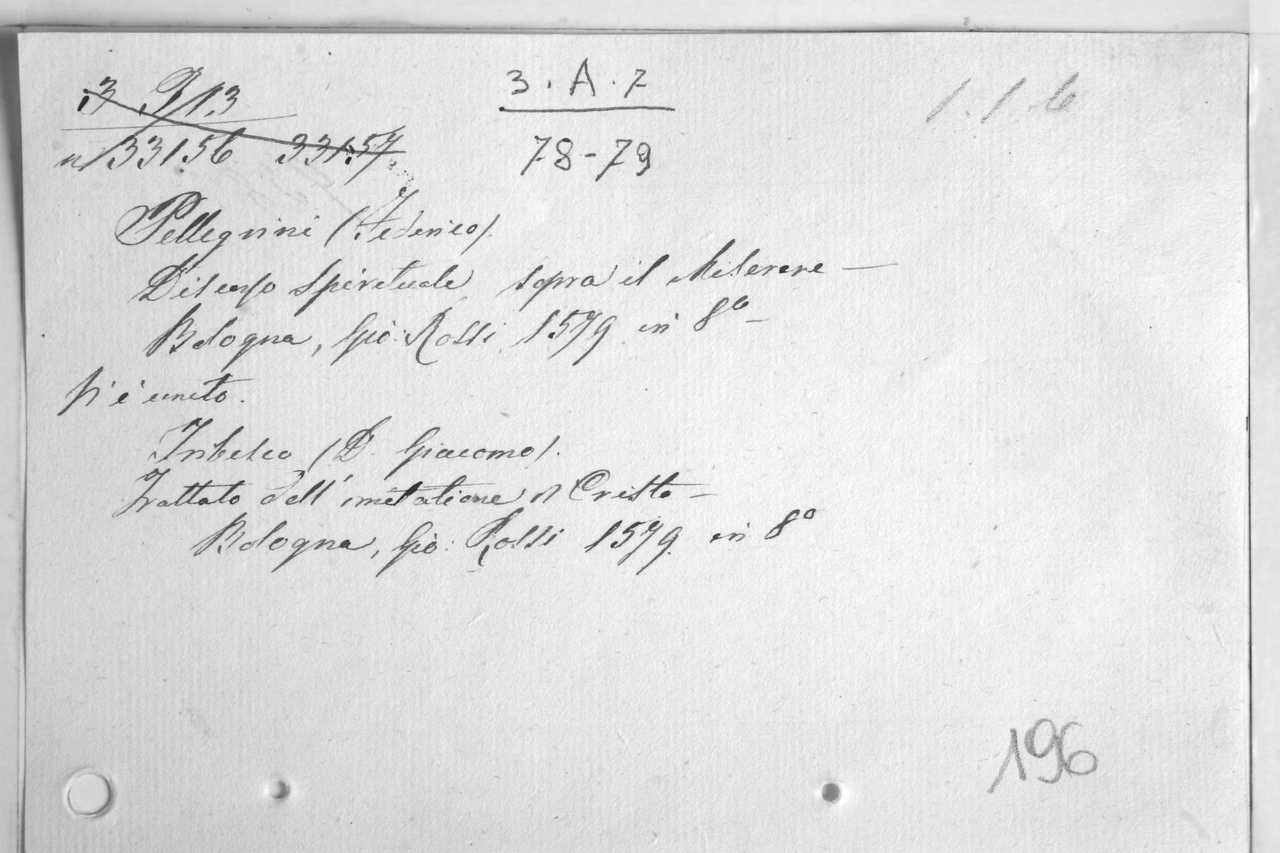 3 I 13
3.A.7
1.1.6
n/ 33156 33157
78-79
Pellegrini (Federico).
Discorso Spirituale sopra il Miserere —
Bologna, Gio: Rossi 1579. in 8º —
Vi è unito.
Tribesco (D. Giacomo).
Trattato dell'imitatione di Cristo —
Bologna, Gio: Rossi 1579. in 8º
196